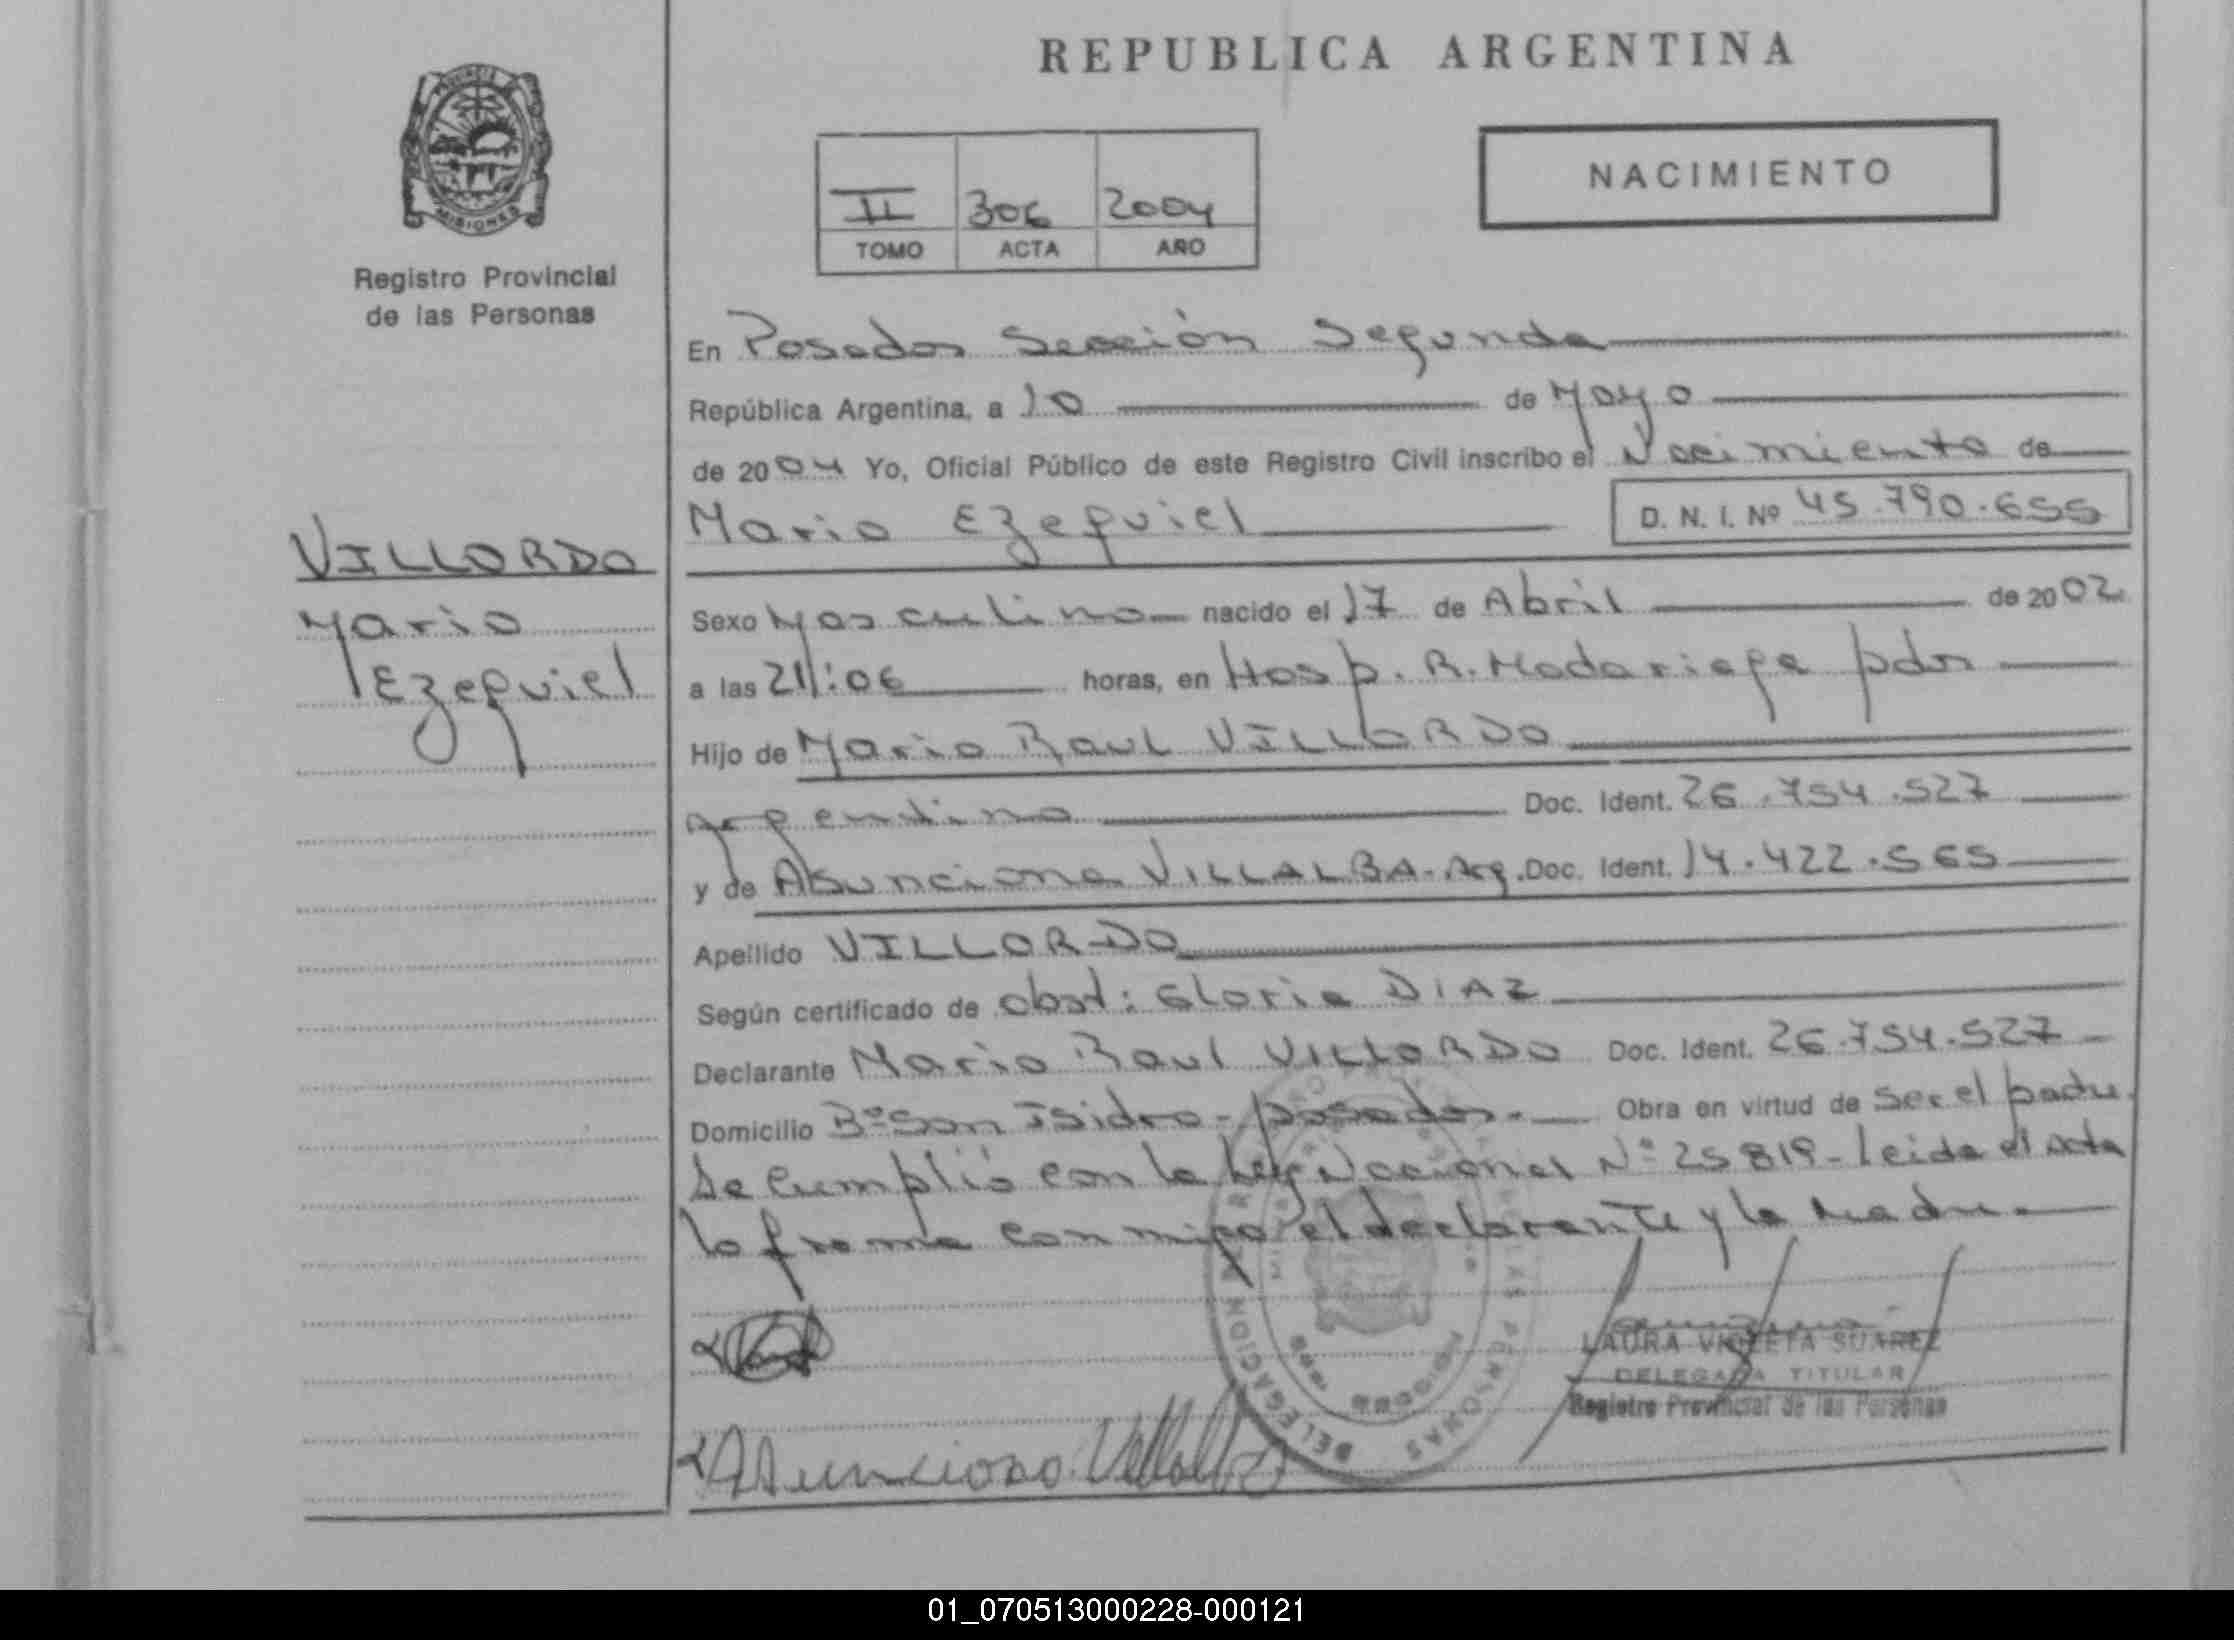 REPUBLICA ARGENTINA
PROVINCIA
MISIONES
Registro Provincial
de las Personas
NACIMIENTO
II 306 2004
TOMO ACTA AÑO
En Posadas Sección Segunda
República Argentina, a 10 de Mayo
de 2004 Yo, Oficial Público de este Registro Civil inscribo el Nacimiento de
Mario Ezequiel D. N. I. Nº 45.790.655
VILLORDO
Mario
Ezequiel
Sexo Masculino nacido el 17 de Abril de 2002
a las 21:06 horas, en Hosp. R. Madariaga pdas
Hijo de Mario Raul VILLORDO
argentino Doc. Ident. 26.754.527
y de Asunciona VILLALBA - Arg. Doc. Ident. 14.422.565
Apellido VILLORDO
Según certificado de obst: Gloria DIAZ
Declarante Mario Raul VILLORDO Doc. Ident. 26.754.527
Domicilio Bº San Isidro - posadas. Obra en virtud de ser el padre.
Se cumplió con la Ley Nacional Nº 25819 - Leida el acta
la firma conmigo el declarante y la Madre
LAURA VIOLETA SUAREZ
DELEGADA TITULAR
Registro Provincial de las Personas
Asunciona Villalba
DELEGACION
LAS PERSONAS
MISIONES
01_070513000228-000121